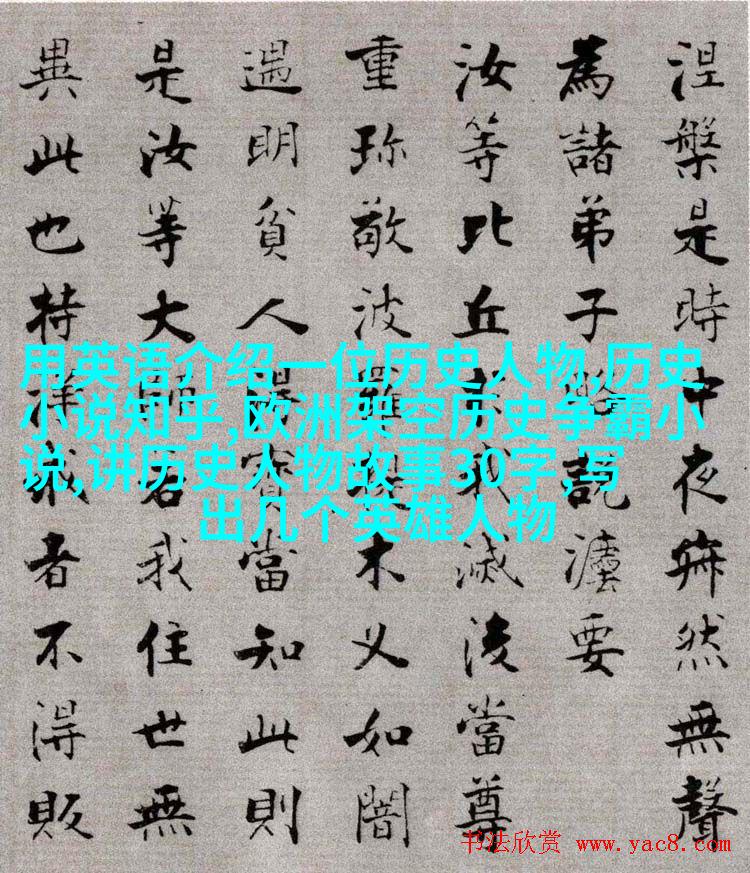 涅槃是時中夜寂然無聲
為諸弟子略說灋要
汝等比丘於我滅後當尊
重珍敬波羅提木叉如闇
遇明貧人得寶當知此則
是汝等大師若我住世無
異此也持戒者不得販
用英语介绍一位历史人物,历史
小说知乎,欧洲架空历史争霸小
说,讲历史人物故事30字,写
出几个英雄人物
书法欣赏 www.yac8.com